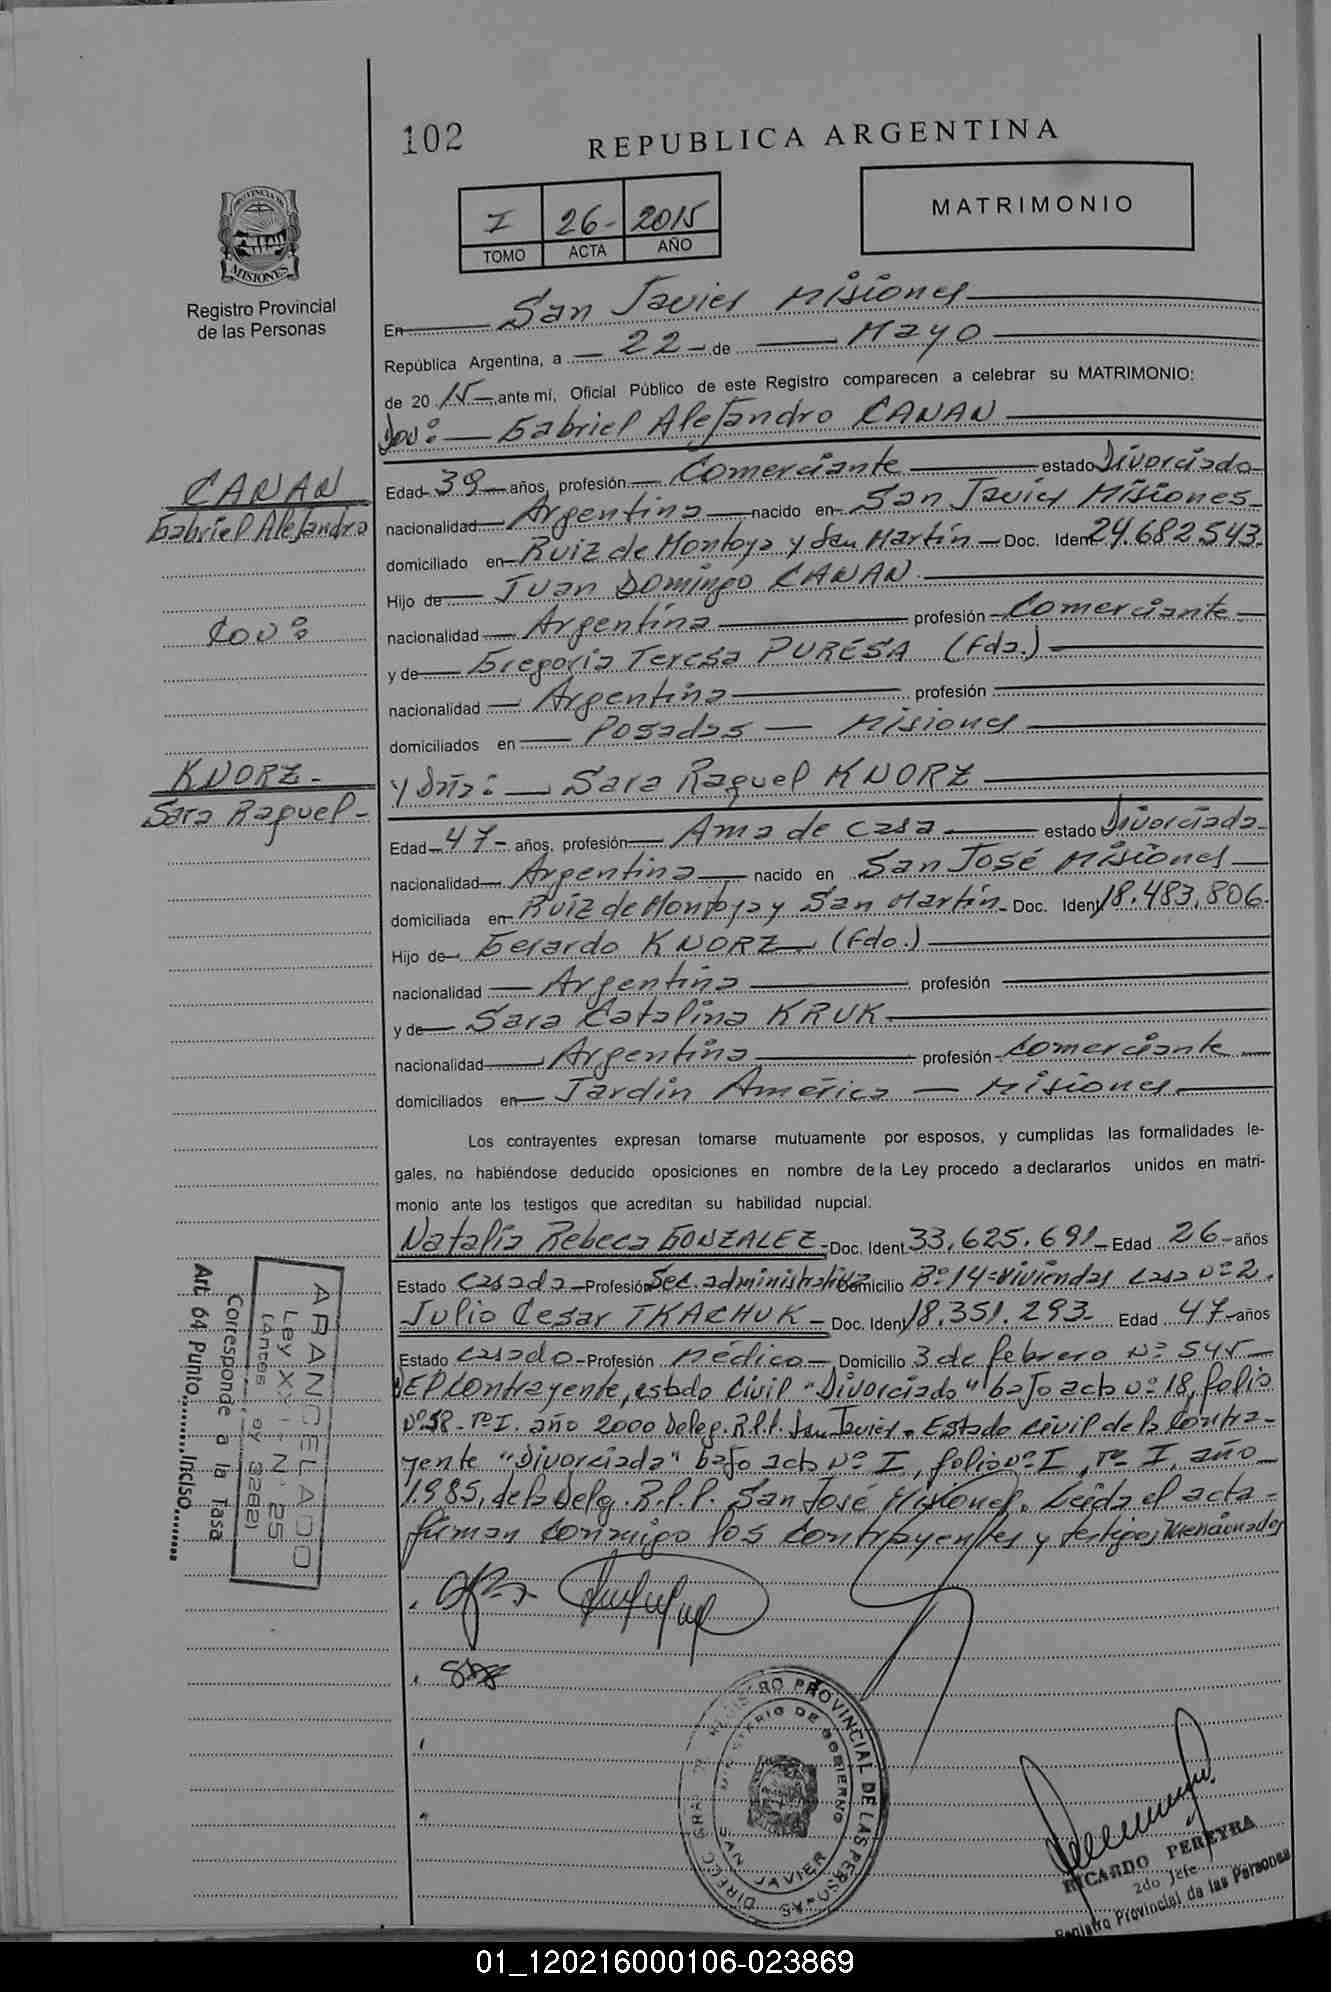 102
REPUBLICA ARGENTINA
PROVINCIA DE
MISIONES
Registro Provincial
de las Personas
I 26- 2015
TOMO ACTA AÑO
MATRIMONIO
En San Javier Misiones
República Argentina, a 22- de Mayo
de 2015 ante mí, Oficial Público de este Registro comparecen a celebrar su MATRIMONIO:
Don: Gabriel Alejandro CANAN
CANAN
Gabriel Alejandro
Edad 39 años, profesión Comerciante estado Divorciado
nacionalidad Argentina nacido en San Javier Misiones
domiciliado en Ruiz de Montoya y San Martín Doc. Iden 24.682.543.
Hijo de Juan Domingo CANAN
nacionalidad Argentina profesión Comerciante
Con:
y de Gregoria Teresa PURESA (Fda.)
nacionalidad Argentina profesión
domiciliados en Posadas - Misiones
KNORZ-
Sara Raquel-
Y Dña: Sara Raquel KNORZ
Edad 47- años, profesión Ama de casa estado Divorciada
nacionalidad Argentina nacido en San José Misiones
domiciliada en Ruiz de Montoya y San Martín- Doc. Ident 18.483.806.
Hijo de Gerardo KNORZ (fdo.)
nacionalidad Argentina profesión
y de Sara Catalina KRUK
nacionalidad Argentina profesión Comerciante
domiciliados en Jardín América - Misiones
Los contrayentes expresan tomarse mutuamente por esposos, y cumplidas las formalidades le-
gales, no habiéndose deducido oposiciones en nombre de la Ley procedo a declararlos unidos en matri-
monio ante los testigos que acreditan su habilidad nupcial.
Natalia Rebeca GONZALEZ- Doc. Ident. 33.625.691- Edad 26- años
Estado Casada- Profesión Sec. administrativa Domicilio Bº 14 viviendas casa nº 2.
Julio Cesar TKACHUK- Doc. Ident 18.351.293- Edad 47- años
Estado Casado- Profesión Médico- Domicilio 3 de febrero Nº 545-
El contrayente, estado civil "Divorciado" bajo acta nº 18, folio
nº 58- Tº I. año 2000 Deleg. R.P.P. San Javier. Estado civil de la Contra-
yente "Divorciada" bajo acta nº I, folio nº I, Tº I, año
1.985, de la Deleg. R.P.P. San José Misiones. Leída el acta
firman conmigo los contrayentes y testigos mencionados
ARANCELADO
Ley XXI - Nº 25
(Antes Ley 3262)
Corresponde a la Tasa
Art. 64 Punto.........Inciso.......
REGISTRO PROVINCIAL DE LAS PERSONAS
MINISTERIO DE GOBIERNO
SAN JAVIER
RICARDO PEREYRA
2do Jefe
Registro Provincial de las Personas
01_120216000106-023869